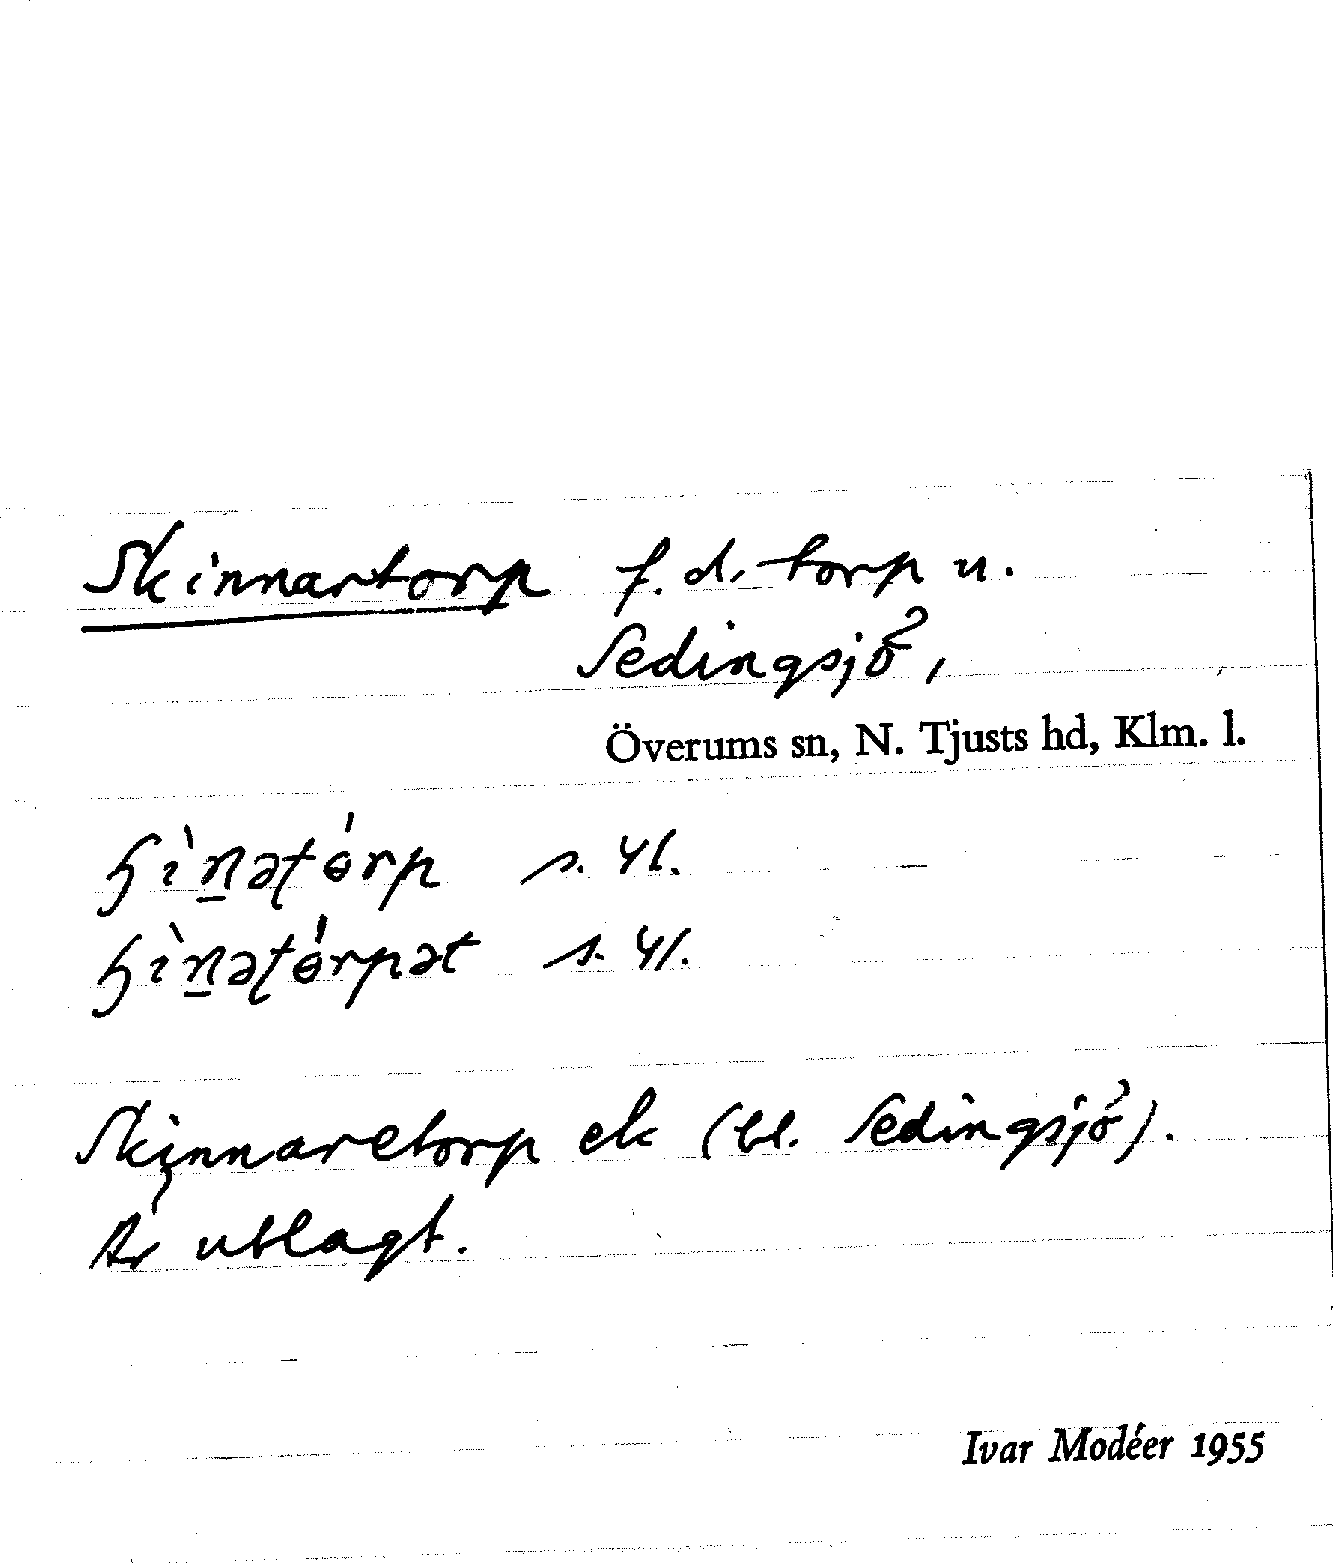 Skinnartorp f.d. torp u.
Sedingsjö,
Överums sn, N. Tjusts hd, Klm. l.
s. yl.
s. yl.
Skinnaretorp ek (bl. Sedingsjö).
Är utlagt.
Ivar Modéer 1955